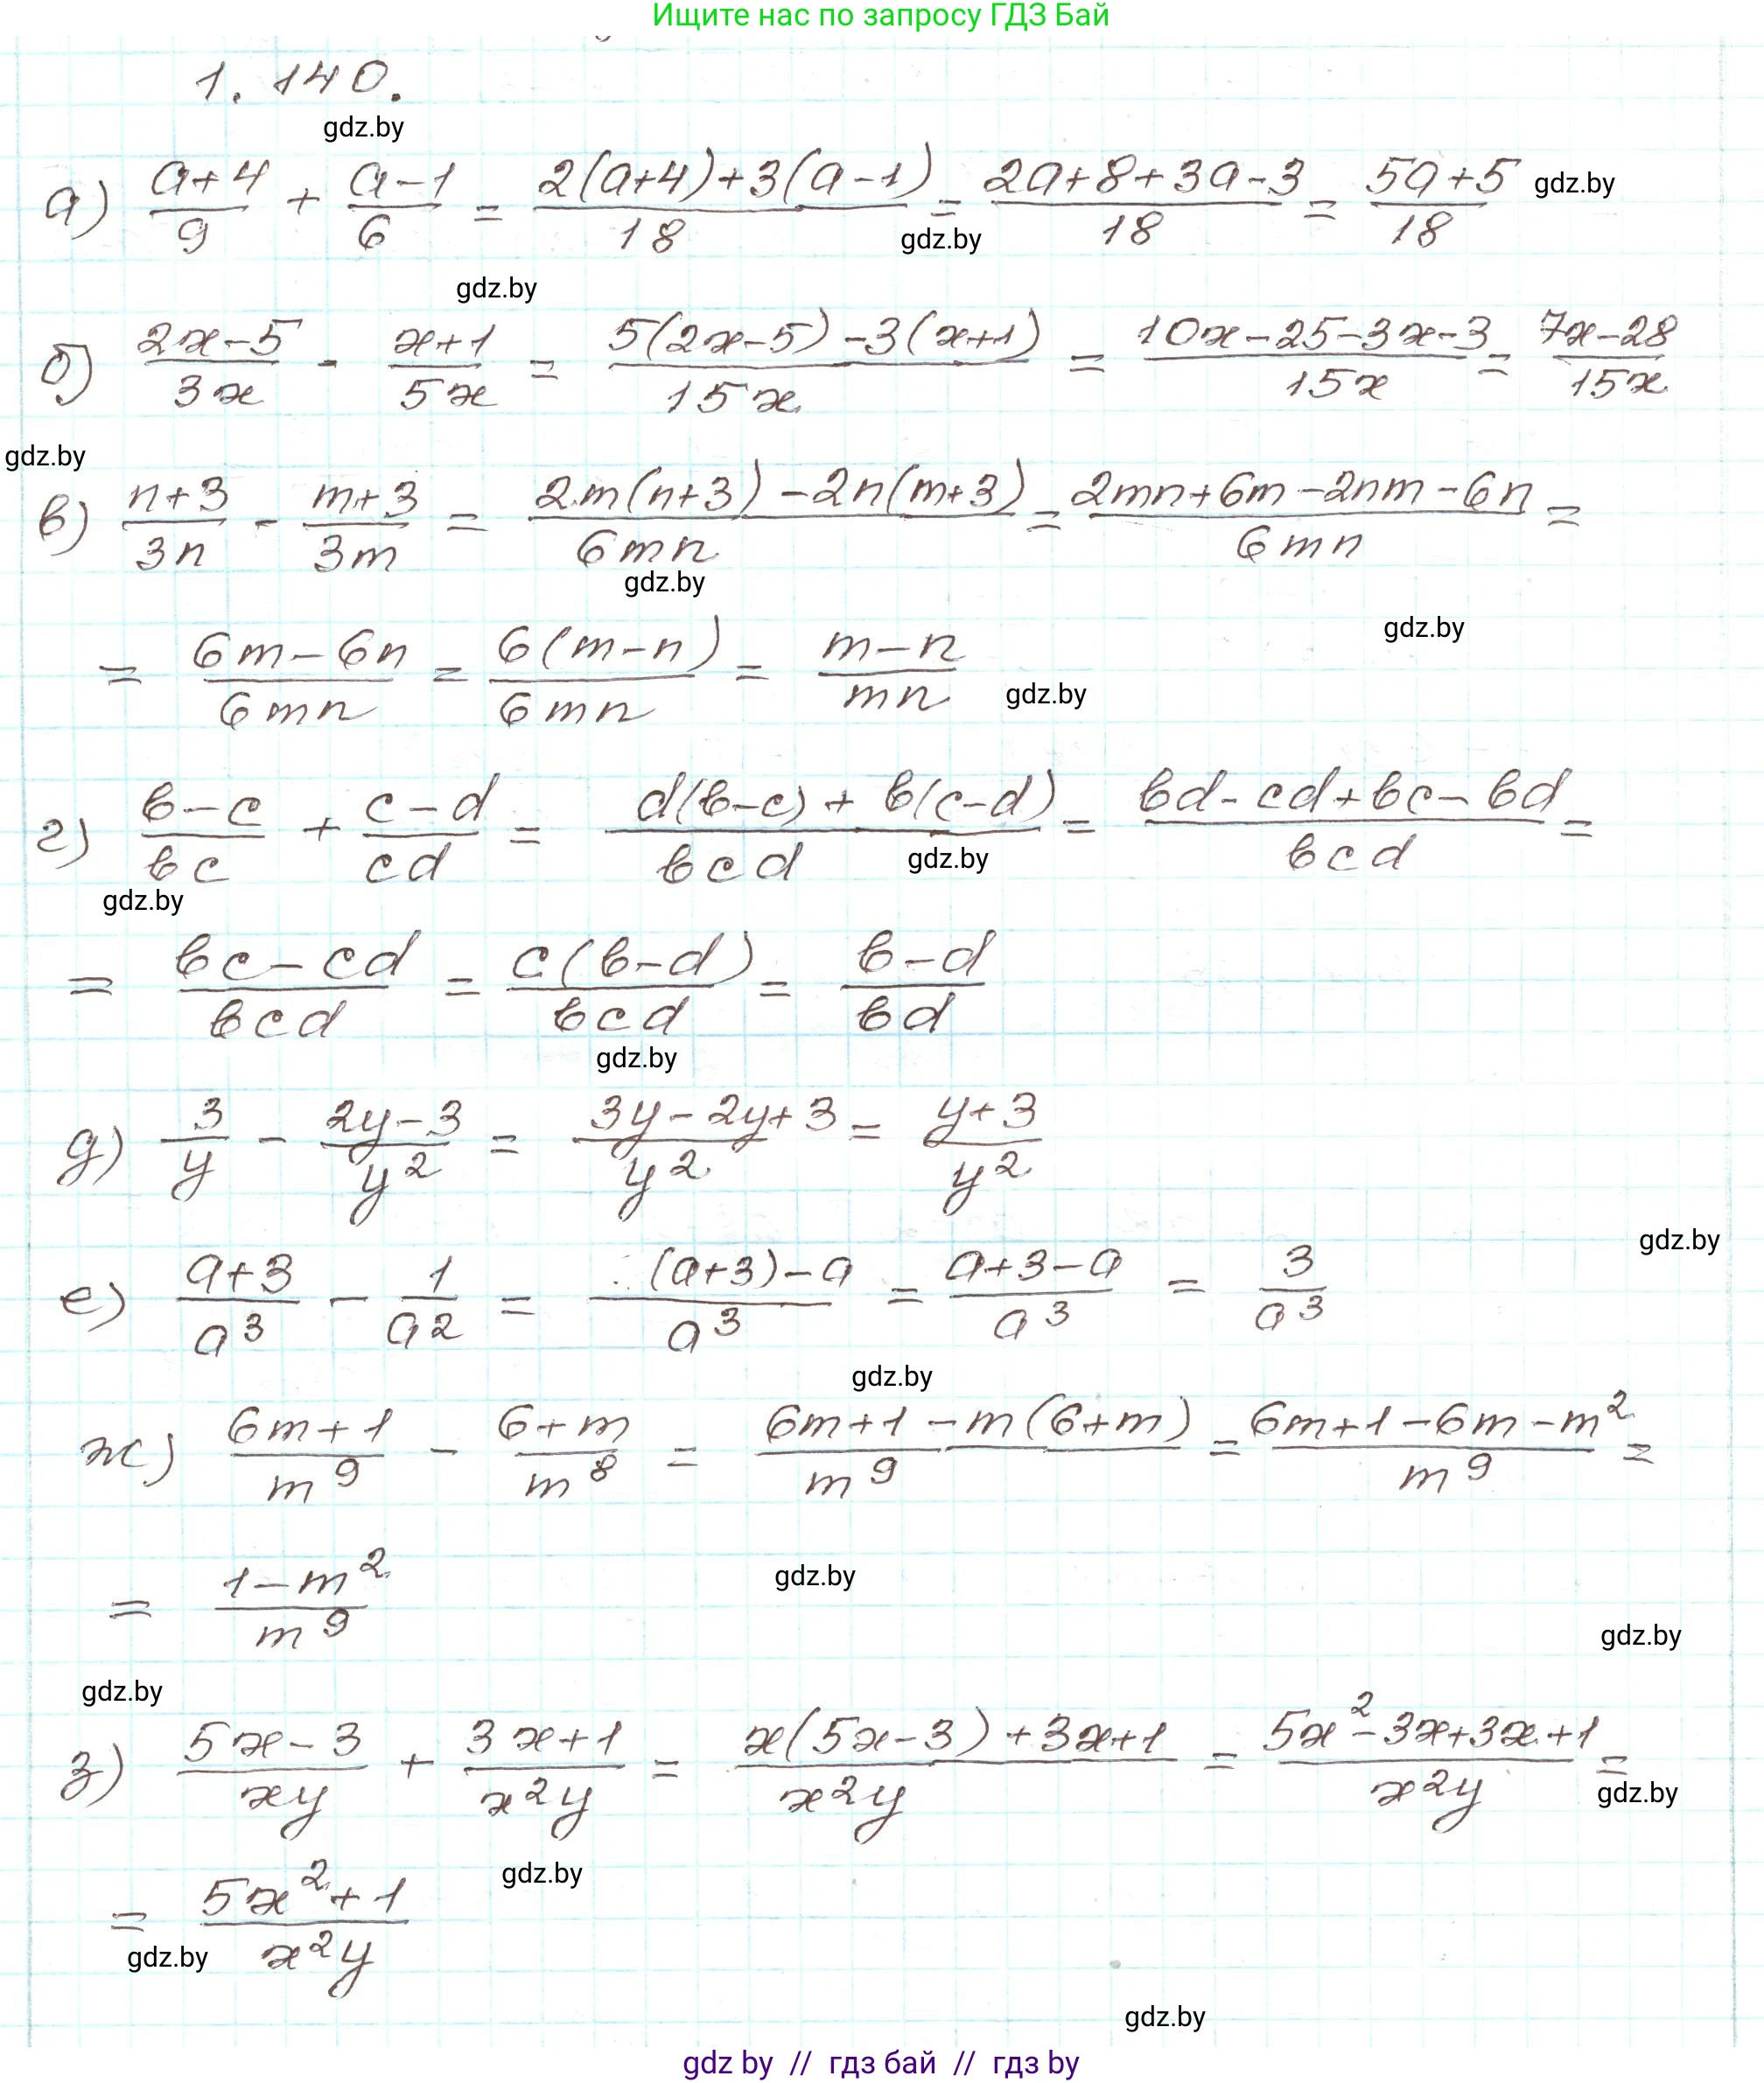 Ищите нас по запросу ГДЗ Бай
1. 140.
gdz.by
а) (a+4)/9 + (a-1)/6 = (2(a+4)+3(a-1))/18 = (2a+8+3a-3)/18 = (5a+5)/18 gdz.by
gdz.by
gdz.by
б) (2x-5)/3x - (x+1)/5x = (5(2x-5)-3(x+1))/15x = (10x-25-3x-3)/15x = (7x-28)/15x
gdz.by
в) (n+3)/3n - (m+3)/3m = (2m(n+3)-2n(m+3))/6mn = (2mn+6m-2nm-6n)/6mn =
gdz.by
gdz.by
= (6m-6n)/6mn = (6(m-n))/6mn = (m-n)/mn gdz.by
г) (b-c)/bc + (c-d)/cd = (d(b-c)+b(c-d))/bcd = (bd-cd+bc-bd)/bcd =
gdz.by
gdz.by
= (bc-cd)/bcd = (c(b-d))/bcd = (b-d)/bd
gdz.by
д) 3/y - (2y-3)/y² = (3y-2y+3)/y² = (y+3)/y²
gdz.by
е) (a+3)/a³ - 1/a² = ((a+3)-a)/a³ = (a+3-a)/a³ = 3/a³
gdz.by
ж) (6m+1)/m⁹ - (6+m)/m⁸ = (6m+1-m(6+m))/m⁹ = (6m+1-6m-m²)/m⁹ =
= (1-m²)/m⁹
gdz.by
gdz.by
gdz.by
з) (5x-3)/xy + (3x+1)/x²y = (x(5x-3)+3x+1)/x²y = (5x²-3x+3x+1)/x²y =
gdz.by
gdz.by
= (5x²+1)/x²y
gdz.by
gdz.by
gdz by // гдз бай // гдз by